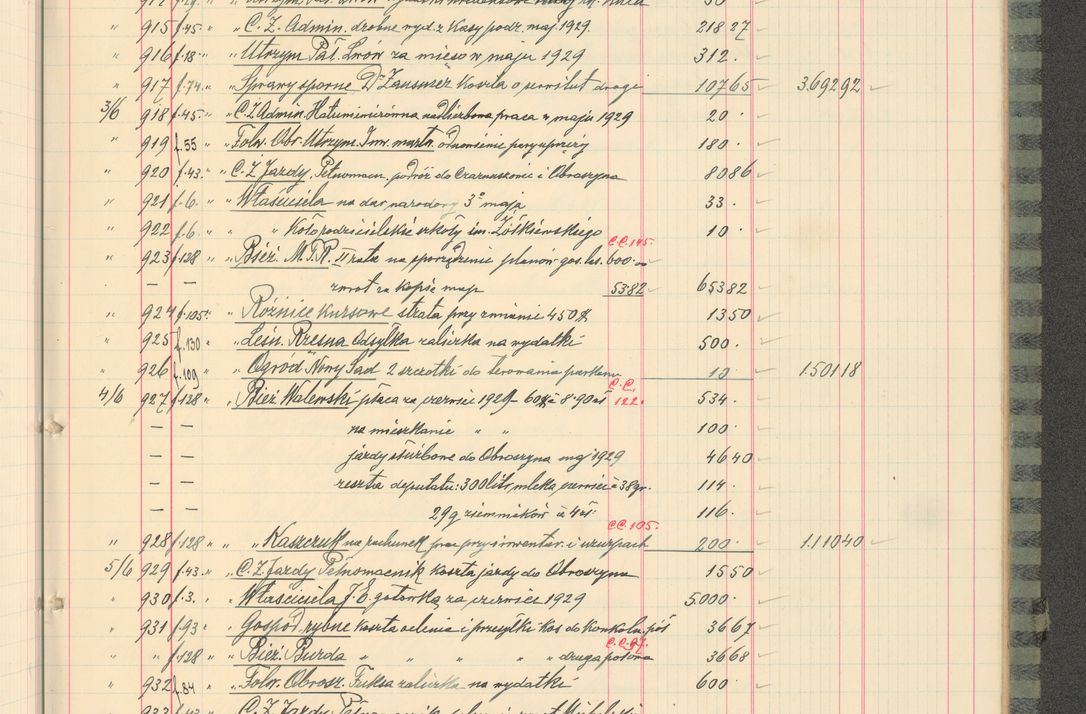 " 915 f.45. " " C. Z. Admin. drobne wyd. z Kasy podr. maj 1929. 218 27
" 916 f.18. " " Utrzym. Pał. Lwów za mięso w maju 1929 312 .
" 917 f.74. " " Sprawy sporne Dr Zausmer koszta o serwitut drogi 107 65 3.692 92
3/6 918 f.45. " " C. Z. Admin. nadliczbowa praca w maju 1929 20 .
" 919 f.55 " " Folw. Obr. Utrzym. Inw. martw. odnowienie pary uprzęży 180 .
" 920 f.43. " " C. Z. Jazdy. Pełnomocn. podróż do i Obroszyna 80 86
" 921 f.6. " " Właściciela na dar narodowy 3o maja 33 .
" 922 f.6. " " " Koło rodzicielskie szkoły im. Żółkiewskiego 10 .
C.C. 145.
" 923 f.128 " " Bież. M.T.R. II rata na sporządzenie planów gos. las. 600.00
— — zwrot za kopie map 53.82 653 82
" 924 f.105. " " Różnice kursowe strata przy zmianie 450 $ 13 50
" 925 f.130 " " Leśn. Rzesna Odsyłka zaliczka na wydatki 500 .
" 926 f.109 " " Ogród "Nowy Sad 2 szczotki do terowania parkanu 10 . 1.501 18
C.C. 122.
4/6 927 f.128 " " Bież. Walewski płaca za czerwiec 1929 - 60 $ à 8.90 zł 534 .
— — na mieszkanie " " 100 .
— — jazdy służbowe do Obroszyna maj 1929 46 40
— — reszta deputatu: 300 litr. mleka à 38 gr. 114 .
— — 29 q ziemniaków à 4 zł. 116 .
C.C. 105.
" 928 f.128 " " Kaszczuk na rachunek prac przy inwentar. i 200 . 1.110 40
5/6 929 f.43. " " C. Z. Jazdy Pełnomocnik koszta jazdy do Obroszyna 15 50
" 930 f.3. " " Właściciela J. E. gotówką za czerwiec 1929 5.000 .
" 931 f.93 " " Gospod. rybne koszta oclenia i przesyłki kos do 36 67
C.C. 97.
" " f.128 " " Bież. Burda " " " " " druga połowa 36 68
" 932 f.84 " " Folw. Obrosz. Fuksa zaliczka na wydatki 600 .